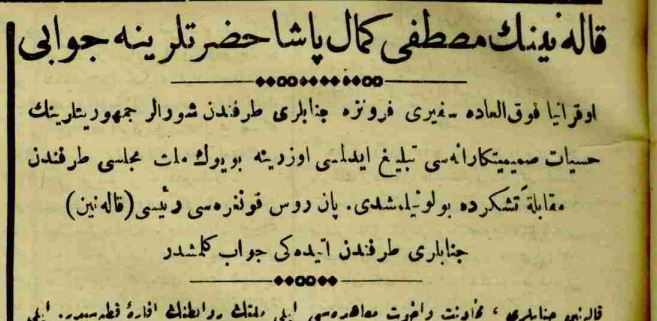 قاله نینك مصطفی كمال پاشا حضرتلرینه جوابی
اوقرانیا فوق‌العاده سفیری فرونزه جنابلری طرفندن شورالر جمهوریتلرینك
حسیات صمیمیتكارانه‌سی تبلیغ ایدلمسی اوزرینه بویوك ملت مجلسی طرفندن
مقابلةً تشكرده بولونیلمشدی. پان روس قونفره‌سی رئیسی (قاله نین)
جنابلری طرفندن آتیده‌كی جواب كلمشدر
جنابلری ، معاهده‌سی ایكی ایكی